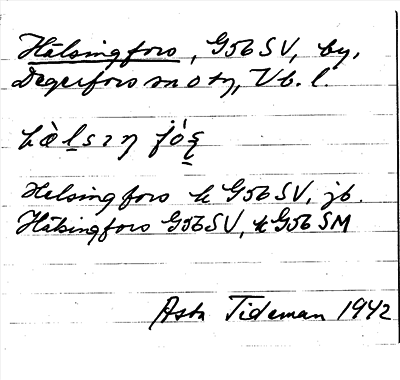 Hälsingfors, G56SV, by,
Degerfors sn o tg, Vb. l.
hæ̀lsıŋ fó
Helsingfors k G56SV, jb.
Hälsingfors G56SV, k G56SM
Asta Tideman 1942